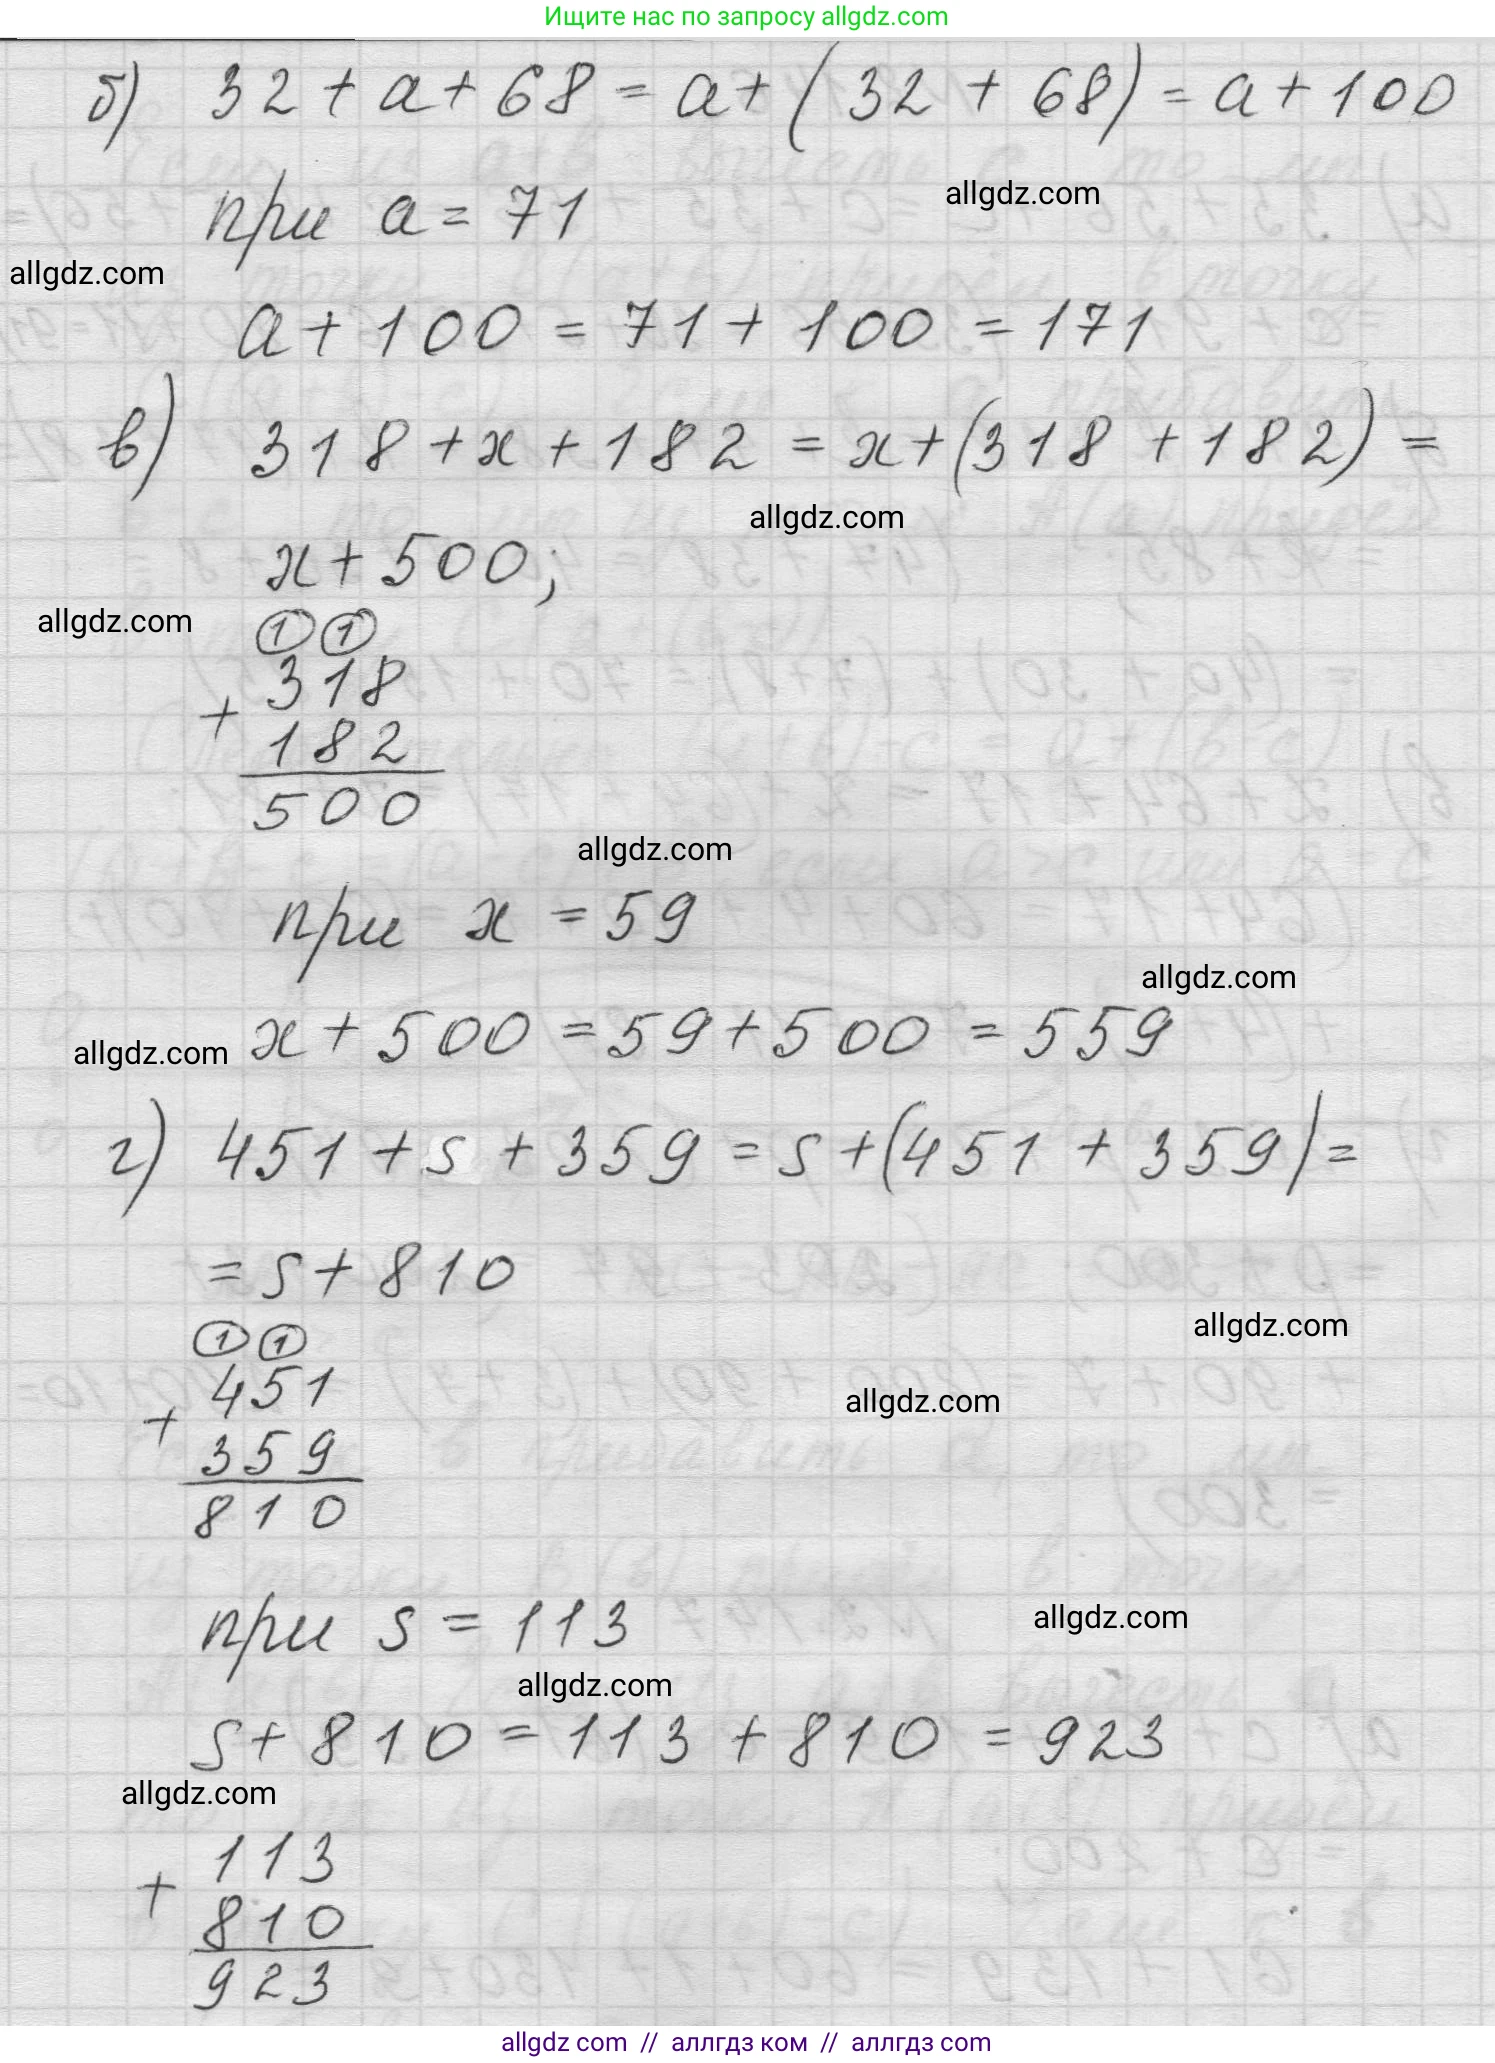 Ищите нас по запросу allgdz.com
б) 32 + a + 68 = a + (32 + 68) = a + 100
allgdz.com
при a = 71
allgdz.com
a + 100 = 71 + 100 = 171
в) 318 + x + 182 = x + (318 + 182) =
allgdz.com
x + 500;
allgdz.com
1 1
+ 318
182
500
allgdz.com
при x = 59
allgdz.com
allgdz.com
x + 500 = 59 + 500 = 559
г) 451 + s + 359 = s + (451 + 359) =
= s + 810
allgdz.com
1 1
allgdz.com
+ 451
359
810
при s = 113
allgdz.com
allgdz.com
s + 810 = 113 + 810 = 923
allgdz.com
+ 113
810
923
allgdz com // аллгдз ком // аллгдз com